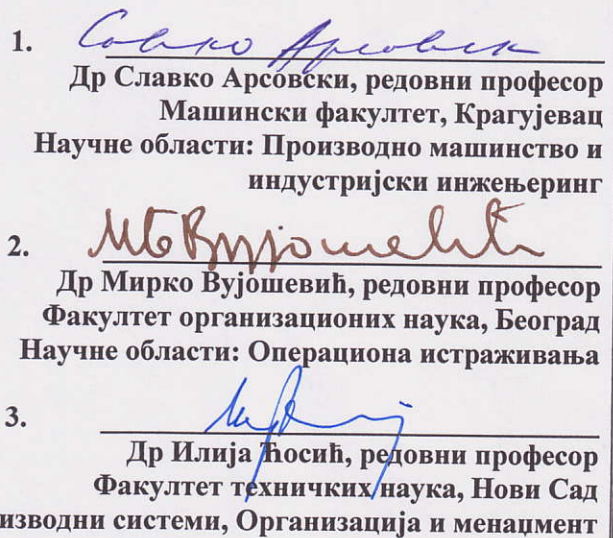 1. Славко Арсовски
Др Славко Арсовски, редовни професор
Машински факултет, Крагујевац
Научне области: Производно машинство и
индустријски инжењеринг
2. МБВујошевић
Др Мирко Вујошевић, редовни професор
Факултет организационих наука, Београд
Научне области: Операциона истраживања
3.
Др Илија Ћосић, редовни професор
Факултет техничких наука, Нови Сад
изводни системи, Организација и менаџмент